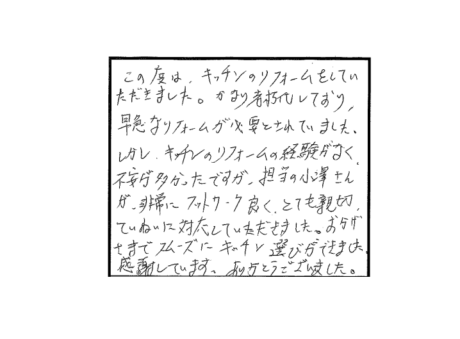 この度は、キッチンのリフォームをしてい
ただきました。かなり老朽化しており、
早急なリフォームが必要とされていました。
しかし、キッチンのリフォームの経験がなく、
不安が多かったですが、担当の小澤さん
が、非常にフットワーク良く、とても親切、
ていねいに対応していただきました。おかげ
さまでスムーズにキッチン選びができました。
感謝しています。ありがとうございました。